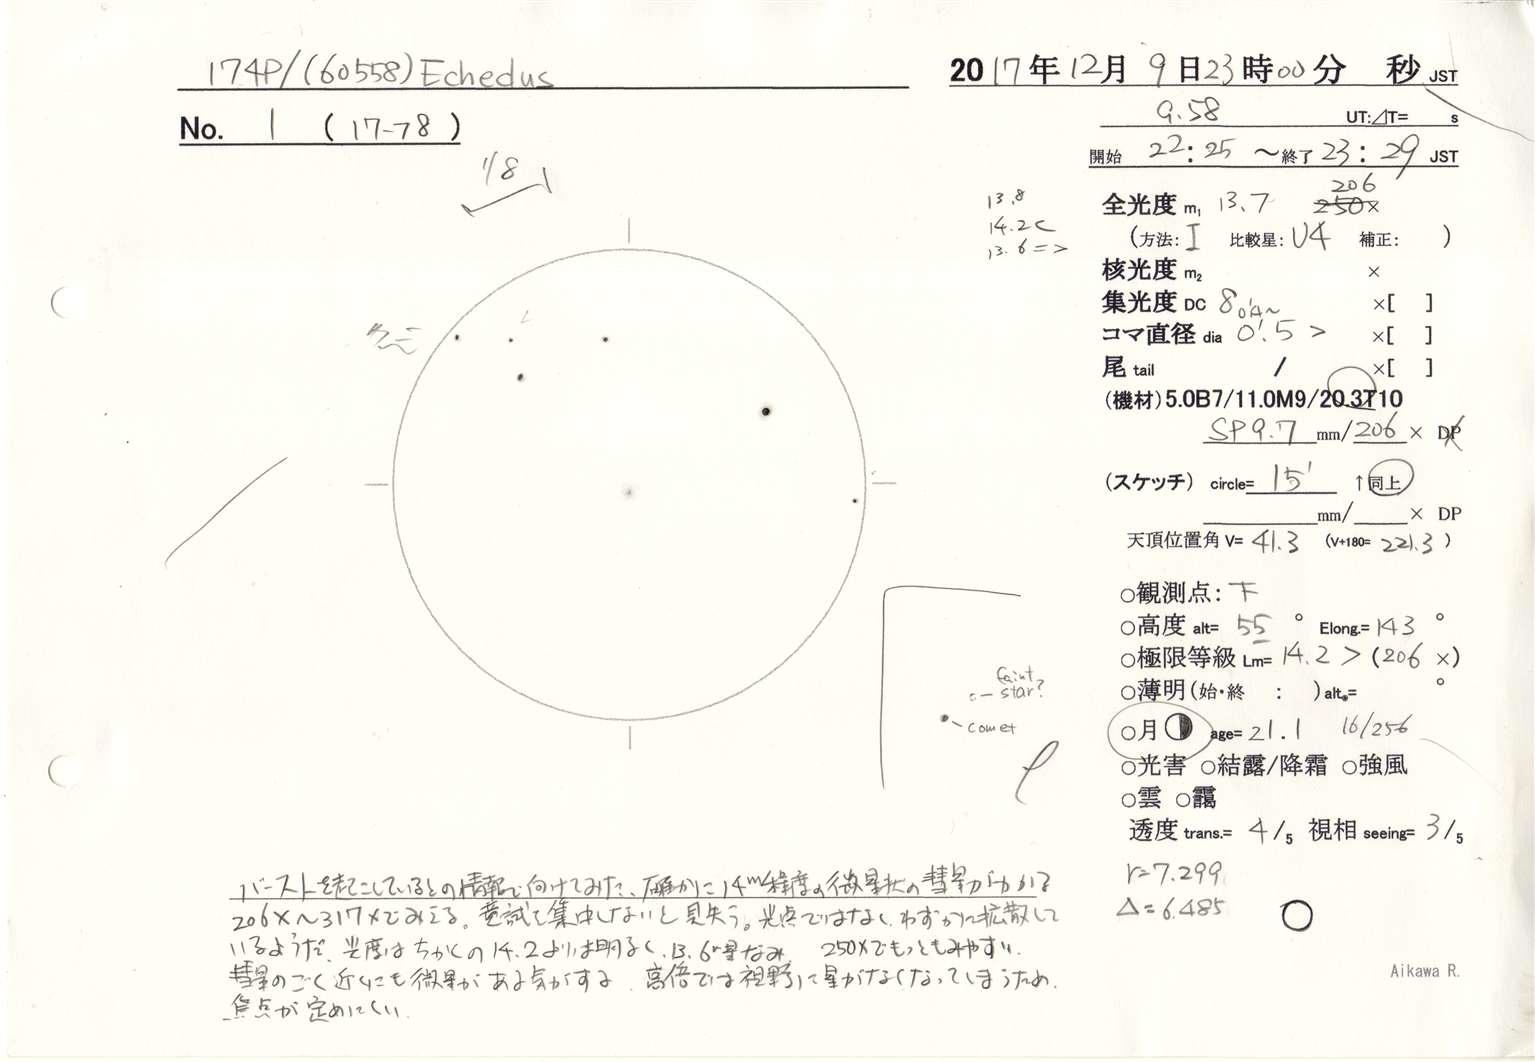 174P/(60558)Echedus
No. 1 (17-78)
1/8
faint
star?
comet
2017年12月9日23時00分 秒 JST
9.58 UT:⊿T= s
開始 22:25 ～終了 23:29 JST
13.8
14.2<
13.6=>
206
全光度 m₁ 13.7 250×
(方法: I 比較星: U4 補正: )
核光度 m₂ ×
集光度 DC 8 ×[ ]
コマ直径 dia 0'.5 > ×[ ]
尾 tail / ×[ ]
(機材) 5.0B7/11.0M9/20.3T10
SP9.7 mm/206 × DP
(スケッチ) circle= 15' ↑同上
mm/ × DP
天頂位置角 V= 41.3 (V+180= 221.3 )
○観測点: 下
○高度 alt= 55 ° Elong.= 143 °
○極限等級 Lm= 14.2 > (206 ×)
○薄明(始・終 : )alt= °
○月 age= 21.1 16/256
○光害 ○結露/降霜 ○強風
○雲 ○靄
透度 trans.= 4/5 視相 seeing= 3/5
r=7.299
Δ=6.485
Aikawa R.
バーストを起こしているとの情報で向けてみた、確かに14ᵐ程度の微星状の彗星がわかる
206×～317×でみえる。意識を集中しないと見失う。光点ではなく、わずかに拡散して
いるようだ、光度はちかくの14.2よりは明るく、13.6星なみ 250×でもっともみやすい.
彗星のごく近くにも微星がある気がする 高倍では視野に星がなくなってしまうため.
焦点が定めにくい.